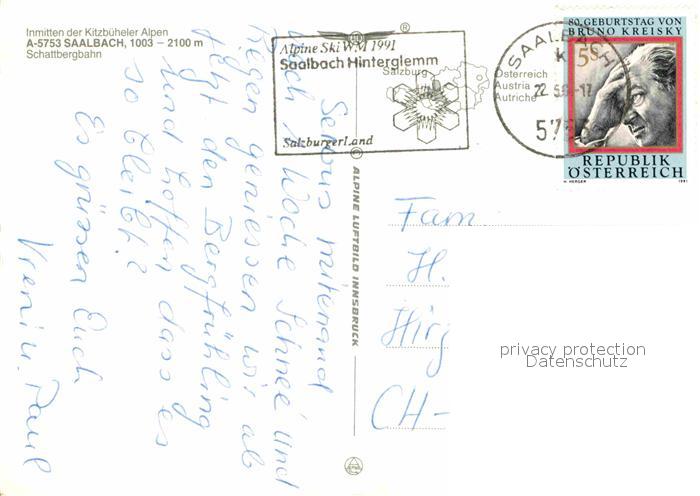 Inmitten der Kitzbüheler Alpen
A-5753 SAALBACH, 1003 – 2100 m
Schattbergbahn
Alpine Ski WM 1991
Saalbach Hinterglemm
Salzburg
SalzburgerLand
SAALBACH
Österreich
Austria
Autriche
22.5.
-17
575
80. GEBURTSTAG VON
BRUNO KREISKY
5S
REPUBLIK
ÖSTERREICH
H. HERGER
1991
ALPINE LUFTBILD INNSBRUCK
Servus mitenand
Nach 1 Woche Schnee und
Regen geniessen wir ab
jetzt den Bergfrühling
und hoffen dass es
so bleibt?
Es grüssen Euch
Vreni u. Paul
Fam
H.
Hirz
CH-
privacy protection
Datenschutz